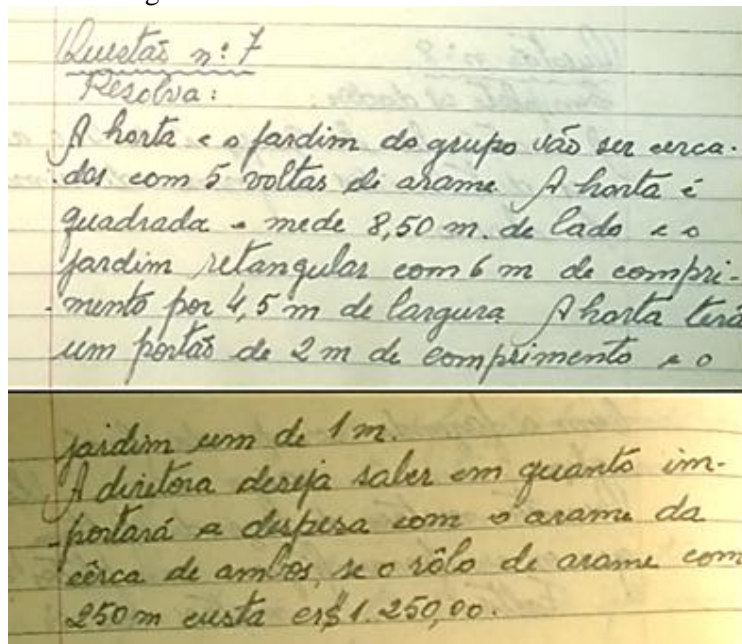 Questão n: 7
Resolva:
A horta e o jardim do grupo vão ser cerca-
dos com 5 voltas de arame. A horta é
quadrada e mede 8,50 m. de lado e o
jardim retangular com 6 m de compri-
mento por 4,5 m de largura. A horta terá
um portão de 2 m de comprimento e o
jardim um de 1 m.
A diretora deseja saber em quanto im-
portará a despesa com o arame da
cêrca de ambos, se o rôlo de arame com
250 m custa cr$ 1.250,00.